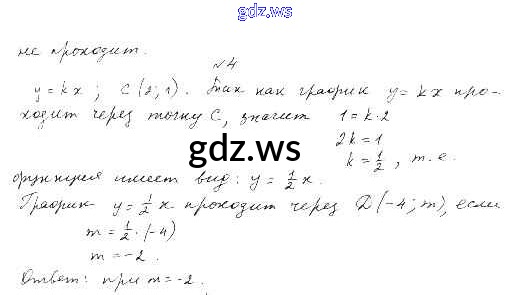 gdz.ws
не проходит.
№4
y = kx; C(2; 1). Так как график y = kx про-
ходит через точку C, значит 1 = k·2
2k = 1
gdz.ws
k = 1/2, т.е.
функция имеет вид: y = 1/2 x.
График y = 1/2 x проходит через D(-4; m), если
m = 1/2 · (-4)
m = -2.
Ответ: при m = -2.